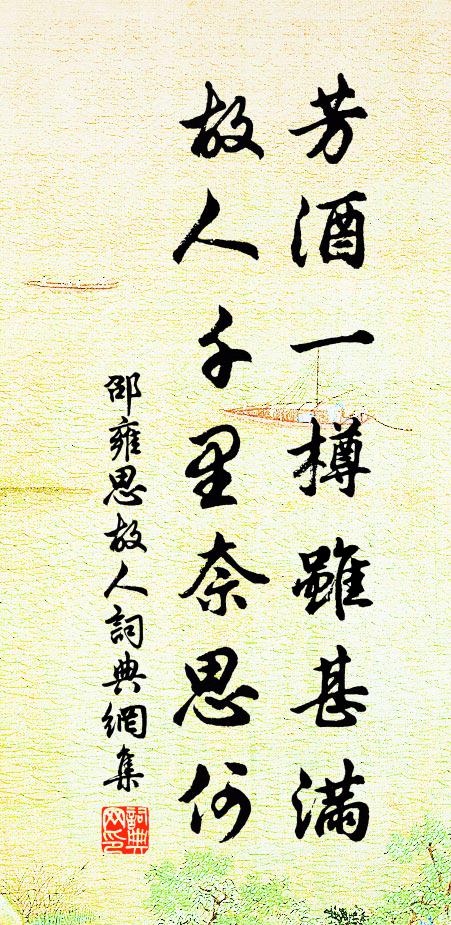 芳酒一樽雖甚滿
故人千里奈思何
邵雍思故人詞典網集
詞典
网印